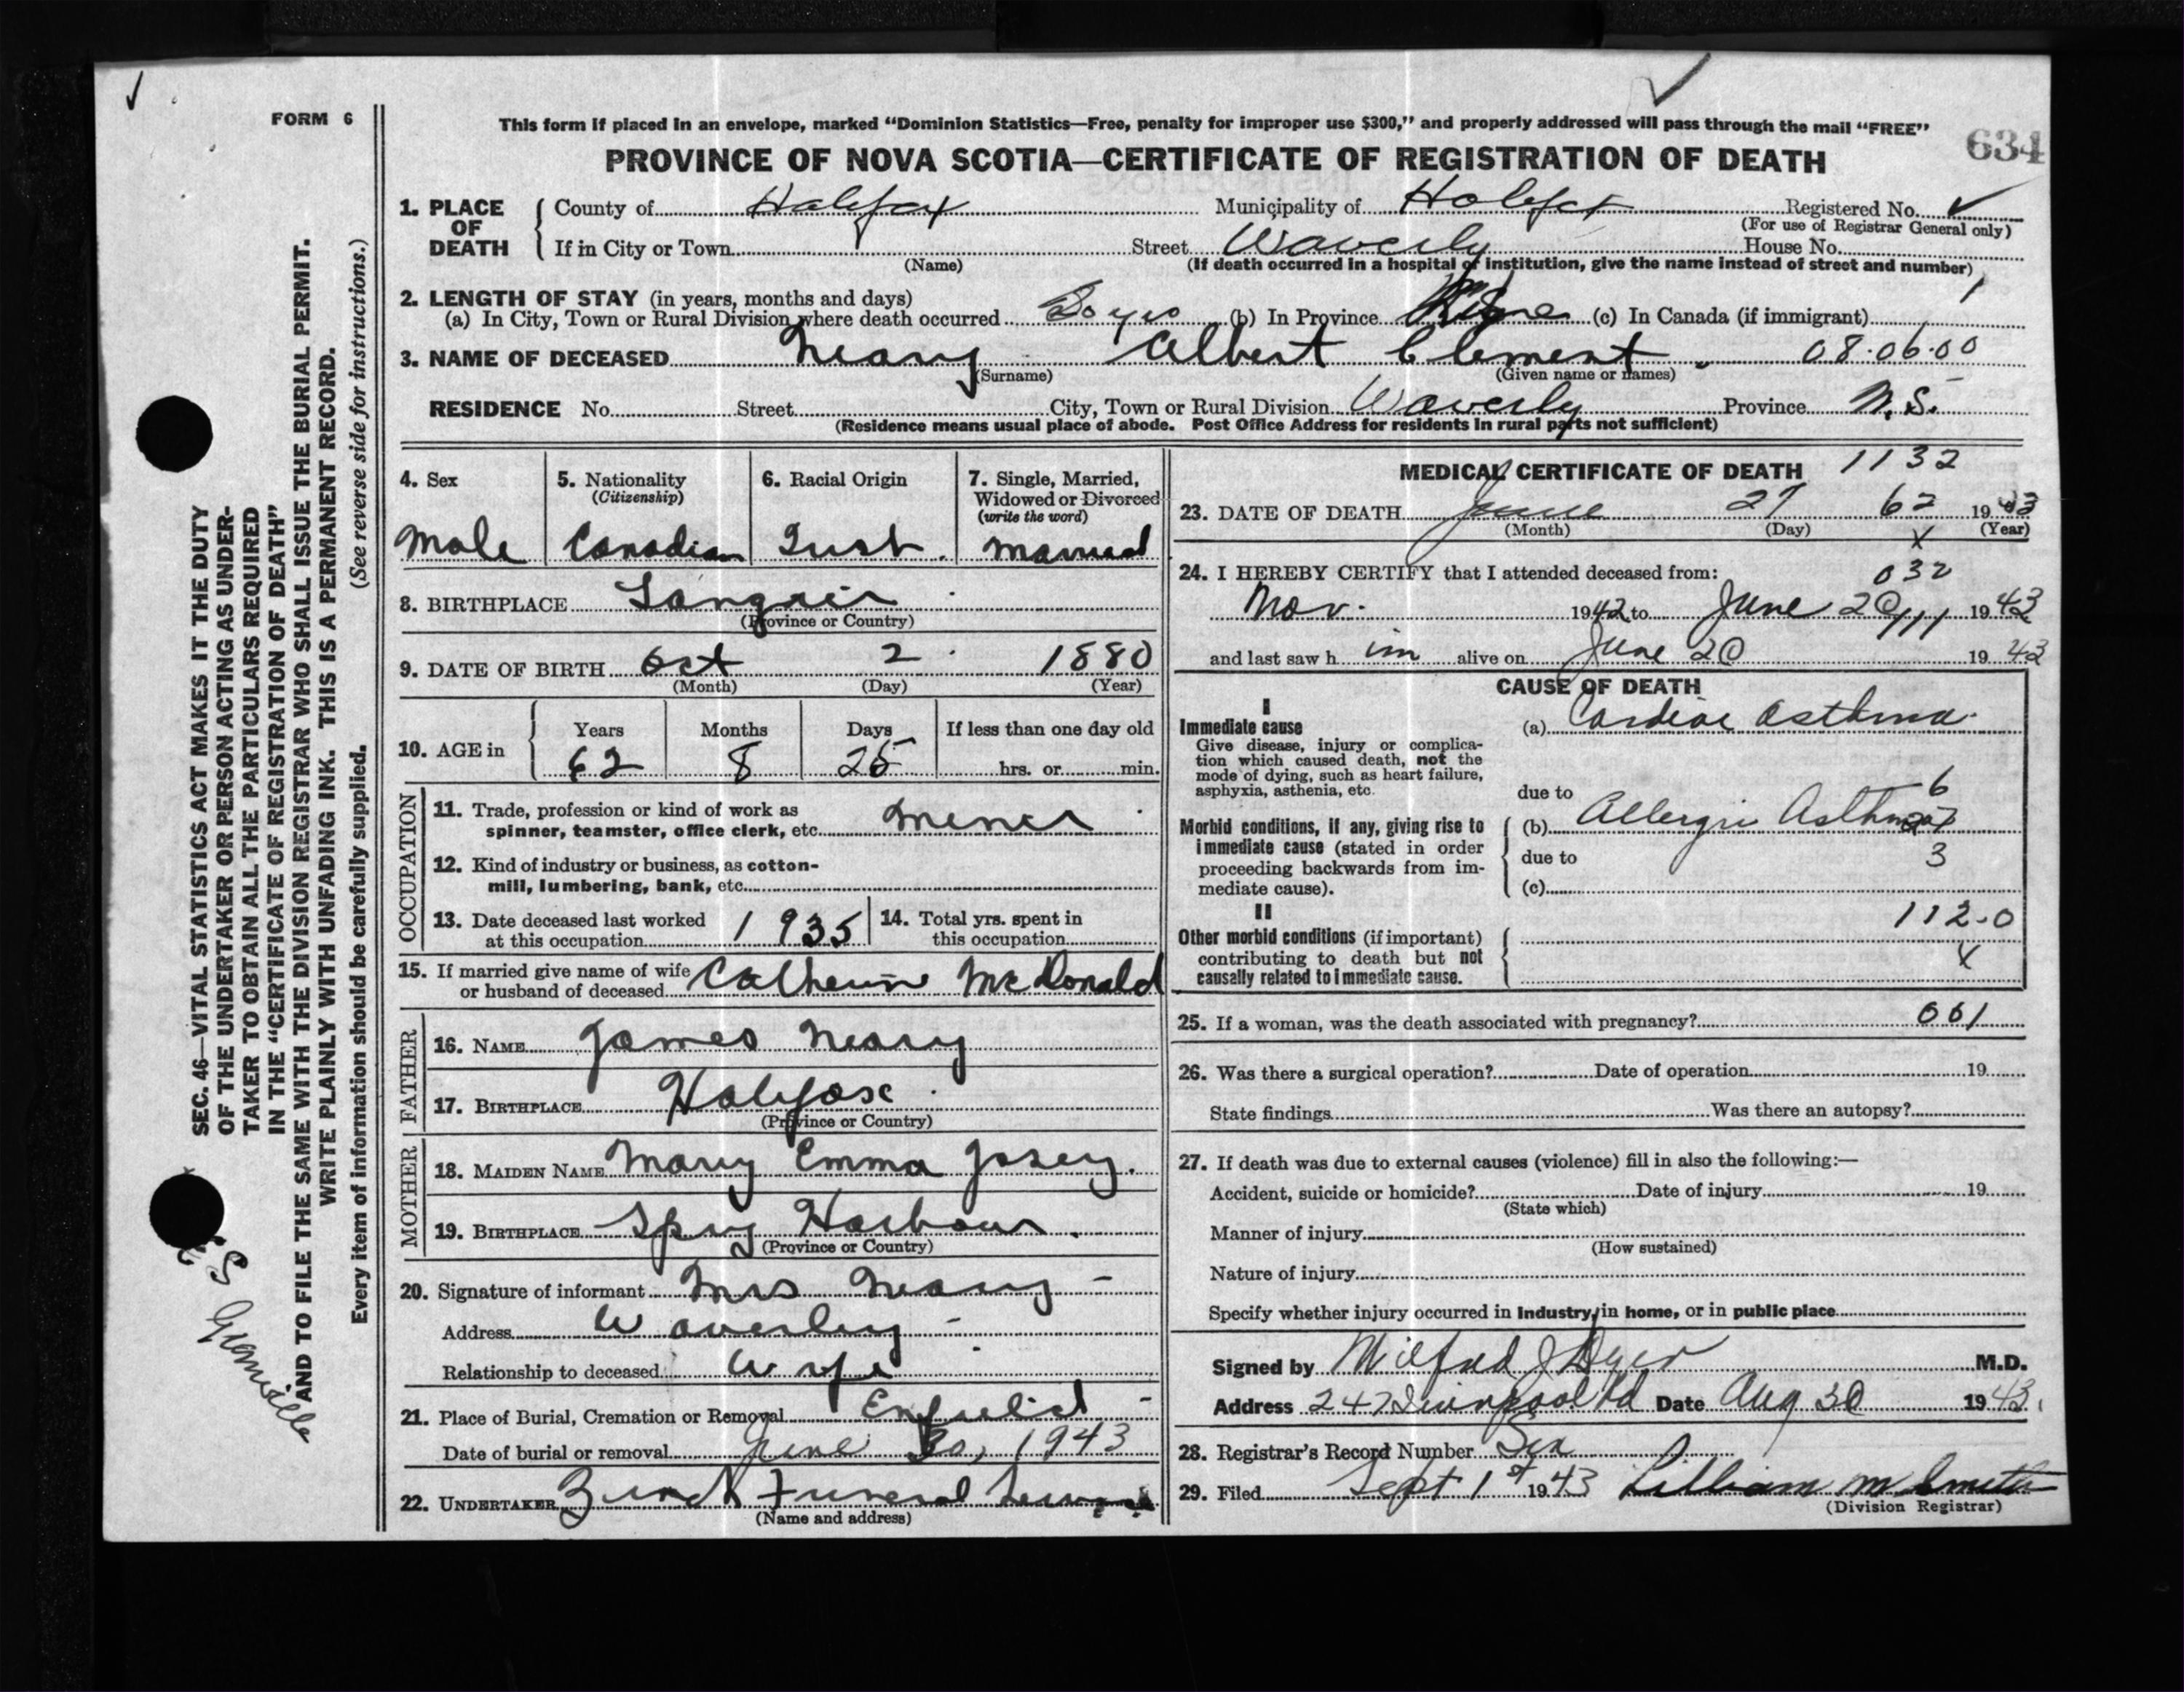 FORM 6
This form if placed in an envelope, marked “Dominion Statistics—Free, penalty for improper use $300,” and properly addressed will pass through the mail “FREE”
PROVINCE OF NOVA SCOTIA—CERTIFICATE OF REGISTRATION OF DEATH
634
1. PLACE OF DEATH
County of Halifax Municipality of Halifax Registered No.
(For use of Registrar General only)
If in City or Town Street Waverly House No.
(Name) (If death occurred in a hospital or institution, give the name instead of street and number)
2. LENGTH OF STAY (in years, months and days)
(a) In City, Town or Rural Division where death occurred yrs (b) In Province (c) In Canada (if immigrant)
3. NAME OF DECEASED Neary Albert Clement 08.06.00
(Surname) (Given name or names)
RESIDENCE No. Street City, Town or Rural Division Waverly Province N.S.
(Residence means usual place of abode. Post Office Address for residents in rural parts not sufficient)
4. Sex
Male
5. Nationality
(Citizenship)
Canadian
6. Racial Origin
7. Single, Married,
Widowed or Divorced
(write the word)
Married
8. BIRTHPLACE Tangier
(Province or Country)
9. DATE OF BIRTH Oct 2 1880
(Month) (Day) (Year)
10. AGE in
Years Months Days If less than one day old
62 8 25 hrs. or min.
OCCUPATION
11. Trade, profession or kind of work as
spinner, teamster, office clerk, etc. Miner
12. Kind of industry or business, as cotton-
mill, lumbering, bank, etc.
13. Date deceased last worked
at this occupation 1935
14. Total yrs. spent in
this occupation
15. If married give name of wife
or husband of deceased Catherine McDonald
FATHER
16. NAME James Neary
17. BIRTHPLACE Halifax
(Province or Country)
MOTHER
18. MAIDEN NAME Mary Emma Josey.
19. BIRTHPLACE Spry Harbour
(Province or Country)
20. Signature of informant Mrs Neary
Address Waverley
Relationship to deceased Wife
21. Place of Burial, Cremation or Removal Enfield
Date of burial or removal June 30, 1943
22. UNDERTAKER Funeral
(Name and address)
MEDICAL CERTIFICATE OF DEATH 1132
23. DATE OF DEATH June 27 62 1943
(Month) (Day) (Year)
X
24. I HEREBY CERTIFY that I attended deceased from:
032
Nov. 1942 to June 20 1943
111
and last saw him alive on June 20 1943
CAUSE OF DEATH
I
Immediate cause
Give disease, injury or complica-
tion which caused death, not the
mode of dying, such as heart failure,
asphyxia, asthenia, etc.
(a) Cardiac Asthma
due to 6
Morbid conditions, if any, giving rise to
immediate cause (stated in order
proceeding backwards from im-
mediate cause).
(b) Allergic Asthma
due to 3
(c)
II
112-0
Other morbid conditions (if important)
contributing to death but not
causally related to immediate cause.
X
25. If a woman, was the death associated with pregnancy? 061
26. Was there a surgical operation? Date of operation 19
State findings Was there an autopsy?
27. If death was due to external causes (violence) fill in also the following:—
Accident, suicide or homicide? Date of injury 19
(State which)
Manner of injury
(How sustained)
Nature of injury
Specify whether injury occurred in Industry, in home, or in public place
Signed by Milfred J Dyer M.D.
Address 247 Date Aug 30 1943
28. Registrar's Record Number Six
29. Filed Sept 1st 1943 Lillian M Smith
(Division Registrar)
SEC. 46—VITAL STATISTICS ACT MAKES IT THE DUTY
OF THE UNDERTAKER OR PERSON ACTING AS UNDER-
TAKER TO OBTAIN ALL THE PARTICULARS REQUIRED
IN THE “CERTIFICATE OF REGISTRATION OF DEATH”
AND TO FILE THE SAME WITH THE DIVISION REGISTRAR WHO SHALL ISSUE THE BURIAL PERMIT.
WRITE PLAINLY WITH UNFADING INK. THIS IS A PERMANENT RECORD.
Every item of information should be carefully supplied. (See reverse side for instructions.)